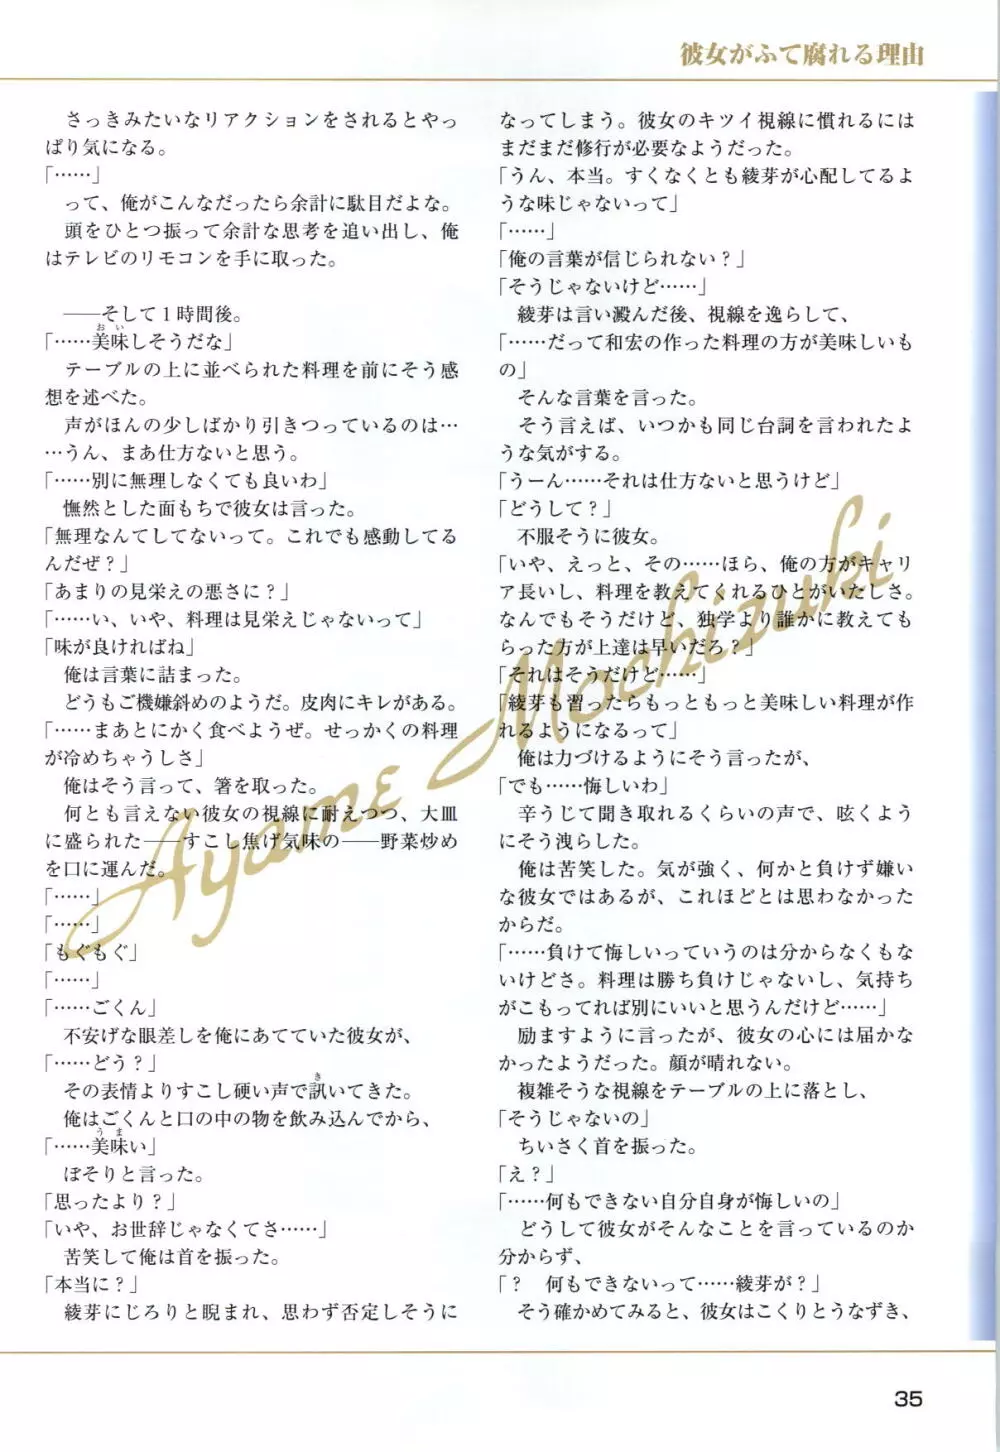 彼女がふて腐れる理由
　さっきみたいなリアクションをされるとやっ
ぱり気になる。
「……」
　って、俺がこんなだったら余計に駄目だよな。
　頭をひとつ振って余計な思考を追い出し、俺
はテレビのリモコンを手に取った。
　――そして１時間後。
「……美味しそうだな」
　テーブルの上に並べられた料理を前にそう感
想を述べた。
　声がほんの少しばかり引きつっているのは…
…うん、まあ仕方ないと思う。
「……別に無理しなくても良いわ」
　憮然とした面もちで彼女は言った。
「無理なんてしてないって。これでも感動してる
んだぜ？」
「あまりの見栄えの悪さに？」
「……い、いや、料理は見栄えじゃないって」
「味が良ければね」
　俺は言葉に詰まった。
　どうもご機嫌斜めのようだ。皮肉にキレがある。
「……まあとにかく食べようぜ。せっかくの料理
が冷めちゃうしさ」
　俺はそう言って、箸を取った。
　何とも言えない彼女の視線に耐えつつ、大皿
に盛られた――すこし焦げ気味の――野菜炒め
を口に運んだ。
「……」
「……」
「もぐもぐ」
「……」
「……ごくん」
　不安げな眼差しを俺にあてていた彼女が、
「……どう？」
　その表情よりすこし硬い声で訊いてきた。
　俺はごくんと口の中の物を飲み込んでから、
「……美味い」
　ぼそりと言った。
「思ったより？」
「いや、お世辞じゃなくてさ……」
　苦笑して俺は首を振った。
「本当に？」
　綾芽にじろりと睨まれ、思わず否定しそうに
なってしまう。彼女のキツイ視線に慣れるには
まだまだ修行が必要なようだった。
「うん、本当。すくなくとも綾芽が心配してるよ
うな味じゃないって」
「……」
「俺の言葉が信じられない？」
「そうじゃないけど……」
　綾芽は言い澱んだ後、視線を逸らして、
「……だって和宏の作った料理の方が美味しいも
の」
　そんな言葉を言った。
　そう言えば、いつかも同じ台詞を言われたよ
うな気がする。
「うーん……それは仕方ないと思うけど」
「どうして？」
　不服そうに彼女。
「いや、えっと、その……ほら、俺の方がキャリ
ア長いし、料理を教えてくれるひとがいたしさ。
なんでもそうだけど、独学より誰かに教えても
らった方が上達は早いだろ？」
「それはそうだけど……」
「綾芽も習ったらもっともっと美味しい料理が作
れるようになるって」
　俺は力づけるようにそう言ったが、
「でも……悔しいわ」
　辛うじて聞き取れるくらいの声で、呟くよう
にそう洩らした。
　俺は苦笑した。気が強く、何かと負けず嫌い
な彼女ではあるが、これほどとは思わなかった
からだ。
「……負けて悔しいっていうのは分からなくもな
いけどさ。料理は勝ち負けじゃないし、気持ち
がこもってれば別にいいと思うんだけど……」
　励ますように言ったが、彼女の心には届かな
かったようだった。顔が晴れない。
　複雑そうな視線をテーブルの上に落とし、
「そうじゃないの」
　ちいさく首を振った。
「え？」
「……何もできない自分自身が悔しいの」
　どうして彼女がそんなことを言っているのか
分からず、
「？　何もできないって……綾芽が？」
　そう確かめてみると、彼女はこくりとうなずき、
Ayame Mochizuki
35